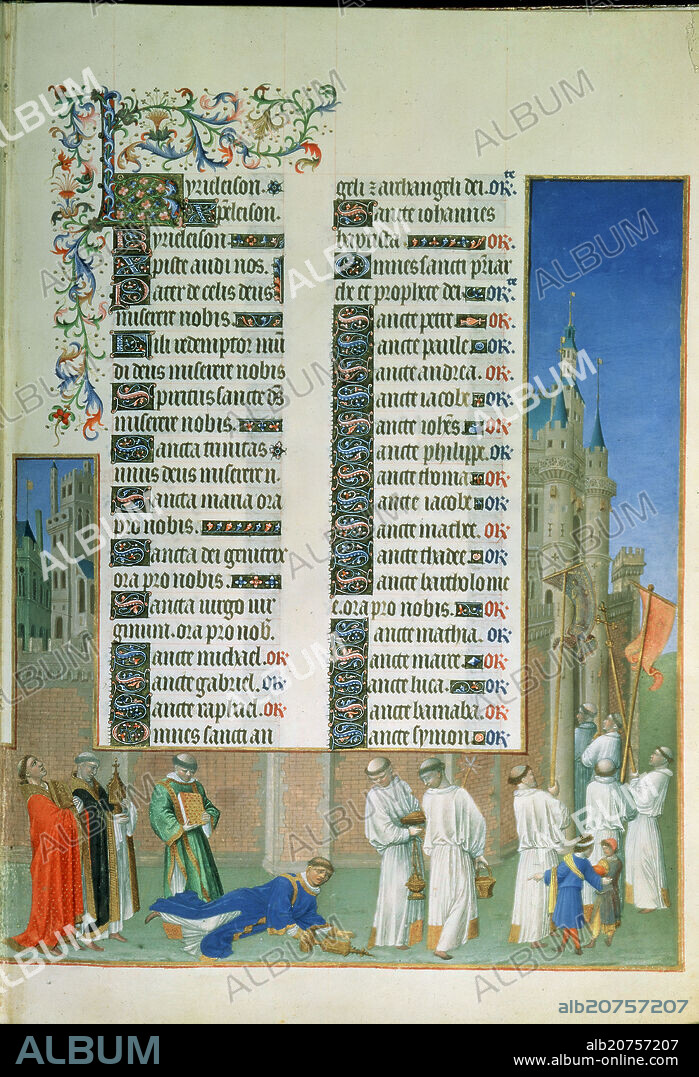 kyrieleison.
xpeleison.
kyrieleison.
xpiste audi nos.
Pater de celis deus
miserere nobis.
Fili redemptor mū
di deus miserere nobis
Spiritus sancte ds̄
miserere nobis.
Sancta trinitas
unus deus miserere n.
Sancta maria ora
pro nobis.
Sancta dei genitrix
ora pro nobis.
Sancta virgo vir
ginum. ora pro nob̄.
Sancte michael. OR.
Sancte gabriel. OR.
Sancte raphael. OR.
Omnes sancti an
geli z archangeli dei. OR.
Sancte iohannes
baptista. OR.
Omnes sancti pr̄iar
che et prophete dei. OR.
Sancte petre OR.
Sancte paule OR.
Sancte andrea. OR.
Sancte iacobe OR.
Sancte ioh̄es OR.
Sancte philippe. OR.
Sancte thoma OR.
Sancte iacobe OR.
Sancte mathee. OR.
Sancte thadee OR.
Sancte bartholome
e. ora pro nobis. OR.
Sancte mathia. OR.
Sancte marce OR.
Sancte luca. OR.
Sancte barnaba. OR.
Sancte symon OR.
alb20757207
ALBUM
alb20757207
www.album-online.com